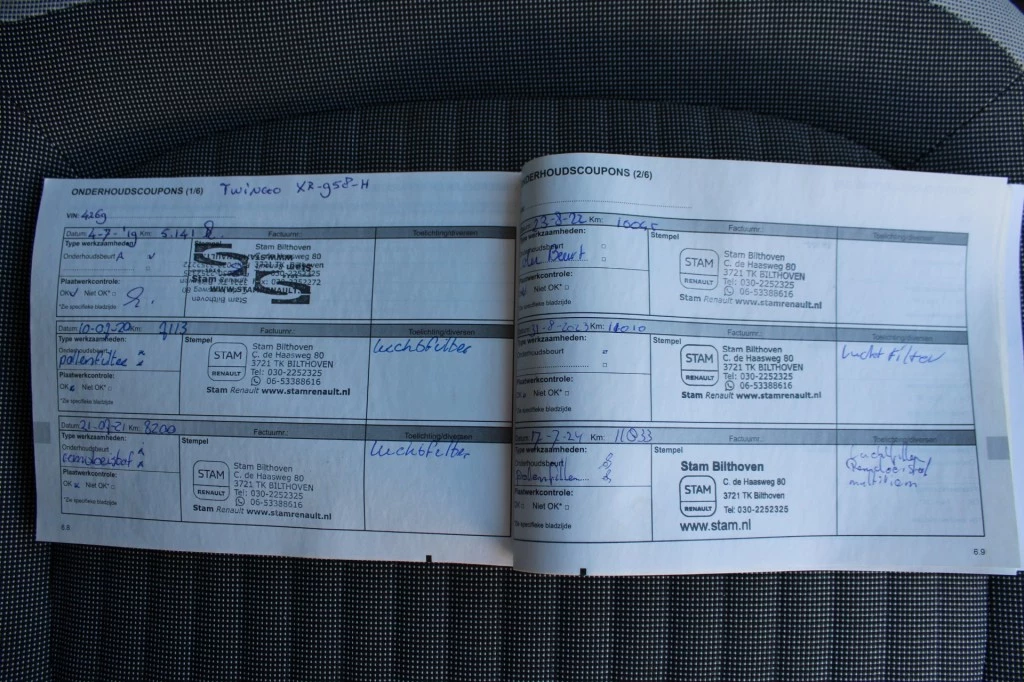 ONDERHOUDSCOUPONS (1/6) TWINGO XR-958-H
VIN: 4269
Datum: 4-7-'19 Km: 5.141 Factuurnr.: Toelichting/diversen
Type werkzaamheden: Stempel
Onderhoudsbeurt A
Stam Bilthoven
C. de Haasweg 80
3721 TK BILTHOVEN
Plaatwerkcontrole:
OK Niet OK*
*Zie specifieke bladzijde
Datum: 10-07-20 Km 7113 Factuurnr.: Toelichting/diversen
Type werkzaamheden: Stempel luchtfilter
Onderhoudsbeurt
pollenfilter
Plaatwerkcontrole:
OK Niet OK*
*Zie specifieke bladzijde
STAM
RENAULT
Stam Bilthoven
C. de Haasweg 80
3721 TK BILTHOVEN
Tel: 030-2252325
06-53388616
Stam Renault www.stamrenault.nl
Datum: 21-07-21 Km: 8200 Factuurnr.: Toelichting/diversen
Type werkzaamheden: Stempel luchtfilter
Onderhoudsbeurt
Plaatwerkcontrole:
OK Niet OK*
*Zie specifieke bladzijde
STAM
RENAULT
Stam Bilthoven
C. de Haasweg 80
3721 TK BILTHOVEN
Tel: 030-2252325
06-53388616
Stam Renault www.stamrenault.nl
6.8
ONDERHOUDSCOUPONS (2/6)
Datum: 23-8-22 Km: Factuurnr.: Toelichting/diversen
Type werkzaamheden: Stempel
Onderhoudsbeurt
Beurt
Plaatwerkcontrole:
Niet OK*
*Zie specifieke bladzijde
STAM
RENAULT
Stam Bilthoven
C. de Haasweg 80
3721 TK BILTHOVEN
Tel: 030-2252325
06-53388616
Stam Renault www.stamrenault.nl
Km: Factuurnr.: Toelichting/diversen
Type werkzaamheden: Stempel luchtfilter
Onderhoudsbeurt
Plaatwerkcontrole:
OK Niet OK*
*Zie specifieke bladzijde
STAM
RENAULT
Stam Bilthoven
C. de Haasweg 80
3721 TK BILTHOVEN
Tel: 030-2252325
06-53388616
Stam Renault www.stamrenault.nl
Datum: 17-7-24 Km: Factuurnr.: Toelichting/diversen
Type werkzaamheden: Stempel
Onderhoudsbeurt
Pollenfilter
Plaatwerkcontrole:
OK Niet OK*
*Zie specifieke bladzijde
STAM
RENAULT
Stam Bilthoven
C. de Haasweg 80
3721 TK Bilthoven
Tel: 030-2252325
www.stam.nl
luchtfilter
Remvloeistof
multiriem
6.9